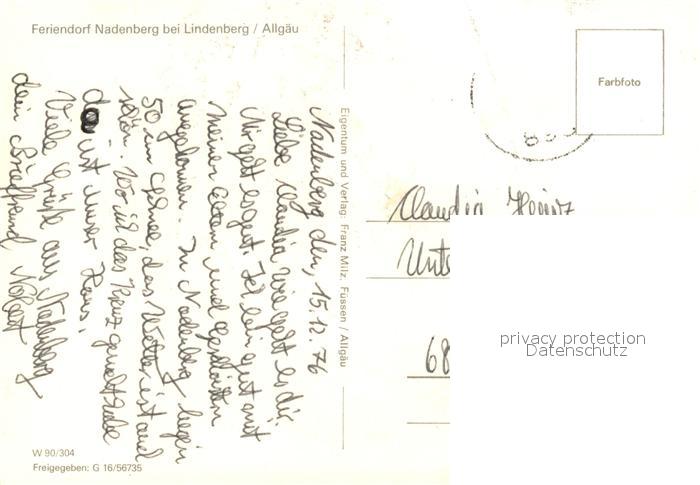 Feriendorf Nadenberg bei Lindenberg / Allgäu
Nadenberg den, 15.12.76
Liebe Claudia wie geht es dir,
Mir geht es gut. Ich bin gut mit
meinen Eltern und Geschwistern
angekommen. In Nadenberg liegen
50 cm Schnee, das Wetter ist auch
schön. Wo ich das Kreuz gemalt habe
da ist unser Haus.
Viele Grüße aus Nadenberg
dein Brieffreund Norbert
Eigentum und Verlag: Franz Milz, Füssen / Allgäu
Farbfoto
Claudia
Unte
68
privacy protection
Datenschutz
W 90/304
Freigegeben: G 16/56735